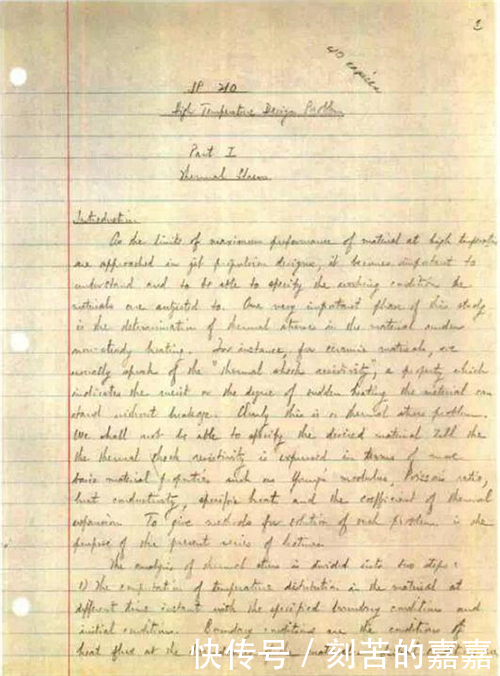 2
40 copies
JP 210
High Temperature Design Problem
Part I
Thermal Stress
Introduction
As the limits of maximum performance of material at high temperature
are approached in jet propulsion designs, it becomes important to
understand and to be able to specify the working condition the
materials are subjected to. One very important phase of this study
is the determination of thermal stress in the material under
non-steady heating. For instance, for ceramic materials, we
usually speak of the "thermal shock resistivity", a property which
indicates the merit or the degree of sudden heating the material can
stand without breakage. Clearly this is a thermal stress problem.
We shall not be able to specify the desired material till the
the thermal shock resistivity is expressed in terms of more
basic material properties such as Young's modulus, Poisson's ratio,
heat conductivity, specific heat and the coefficient of thermal
expansion. To give methods for solution of such problem is the
purpose of the present series of lectures.
The analysis of thermal stress is divided into two steps:
1) The computation of temperature distribution in the material at
different time instant with the specified boundary conditions and
initial conditions. Boundary conditions are the conditions of
heat flux at the
快传号/刻苦的嘉嘉